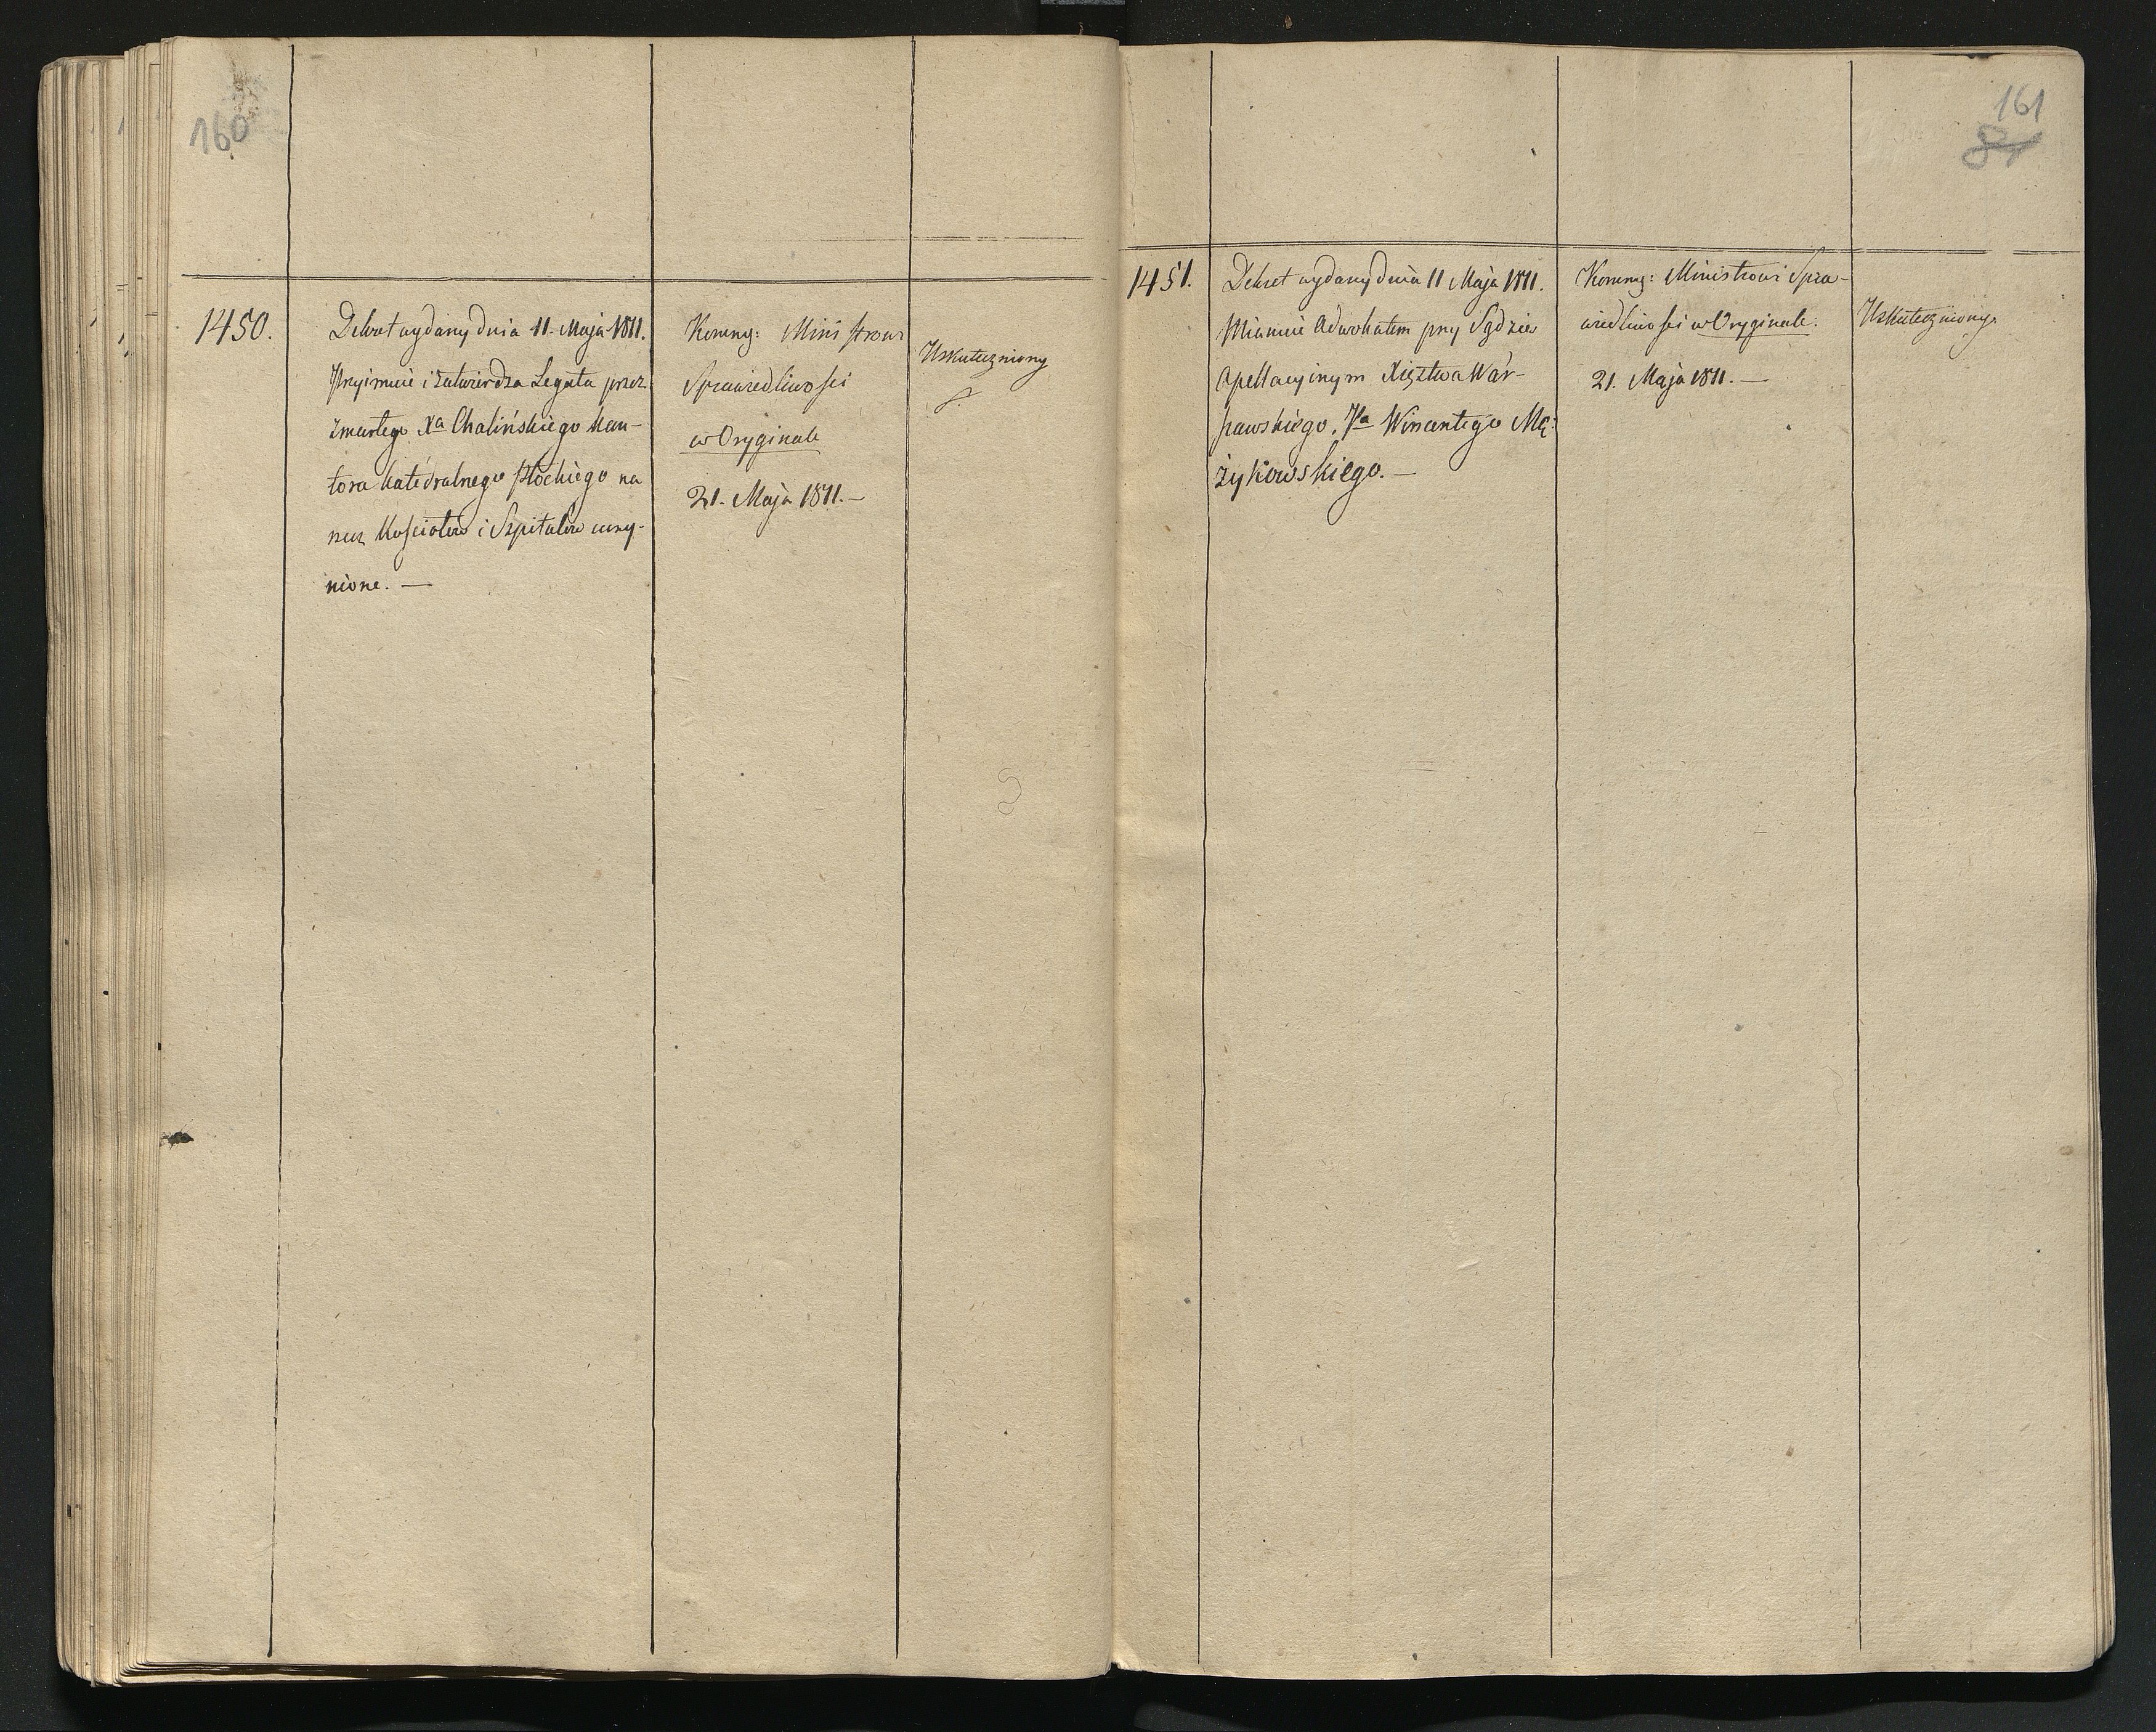 160
1450.
Dekret wydany dnia 11. Maja 1811.
Przyimuie i zatwierdza Legata przez
zmarłego Xa Chalińskiego Kan-
tora Katedralnego Płockiego na
rzecz Kościołów i Szpitalów uczy-
nione. —
Kommg: Ministrowi
Sprawiedliwości
w Oryginale
21. Maja 1811. —
Uskuteczniony
161
81
1451.
Dekret wydany dnia 11 Maja 1811.
Mianuie Adwokatem przy Sądzie
Apellacyinym Xięztwa War-
szawskiego, Pa Wincentego Mę-
żykowskiego. —
Kommg: Ministrowi Spra-
wiedliwości w Oryginale.
21. Maja 1811. —
Uskuteczniony